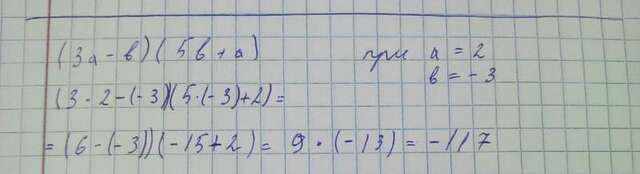 (3a - в)(5в + a) при a = 2
в = -3
(3 · 2 - (-3)(5·(-3)+2) =
= (6 - (-3))(-15+2) = 9 · (-13) = -117